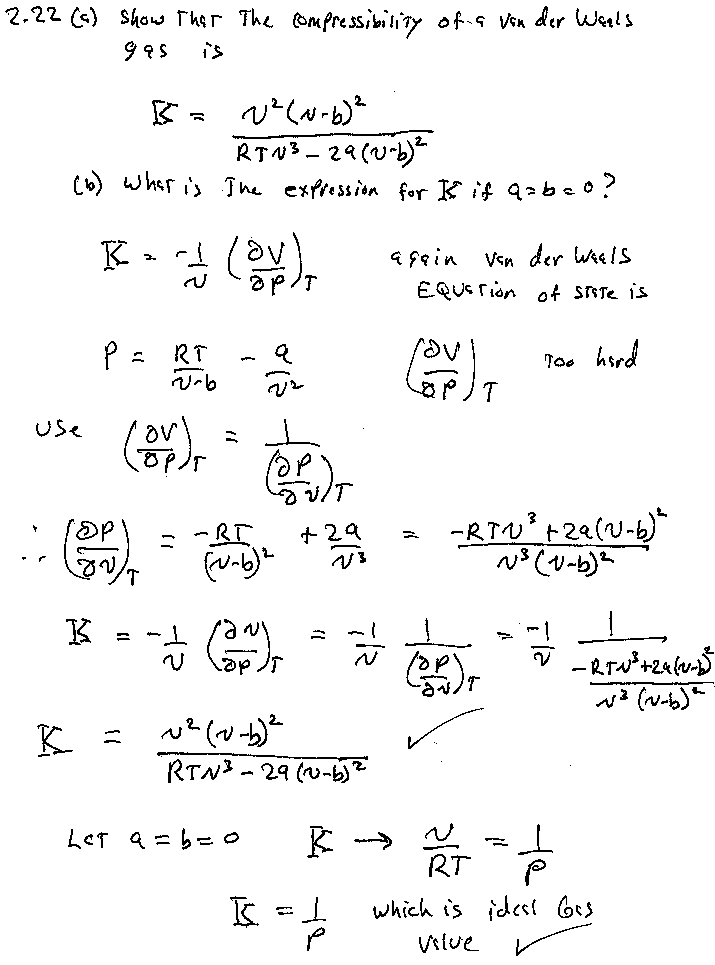 2.22 (a) Show That The compressibility of a Van der Waals
gas is
𝕂 = v²(v-b)² / (RTv³ - 2a(v-b)²)
(b) What is The expression for 𝕂 if a=b=0?
𝕂 = -1/v (∂V/∂P)_T again Van der Waals
EQUATion of STATe is
P = RT/(v-b) - a/v² (∂V/∂P)_T Too hard
Use (∂V/∂P)_T = 1/(∂P/∂v)_T
∴ (∂P/∂v)_T = -RT/(v-b)² + 2a/v³ = (-RTv³ + 2a(v-b)²) / (v³(v-b)²)
𝕂 = -1/v (∂v/∂P)_T = -1/v 1/(∂P/∂v)_T = -1/v 1/((-RTv³+2a(v-b)²) / (v³(v-b)²))
𝕂 = v²(v-b)² / (RTv³ - 2a(v-b)²) ✓
LeT a = b = 0 𝕂 → v/RT = 1/P
𝕂 = 1/P which is ideal Gas
Value ✓